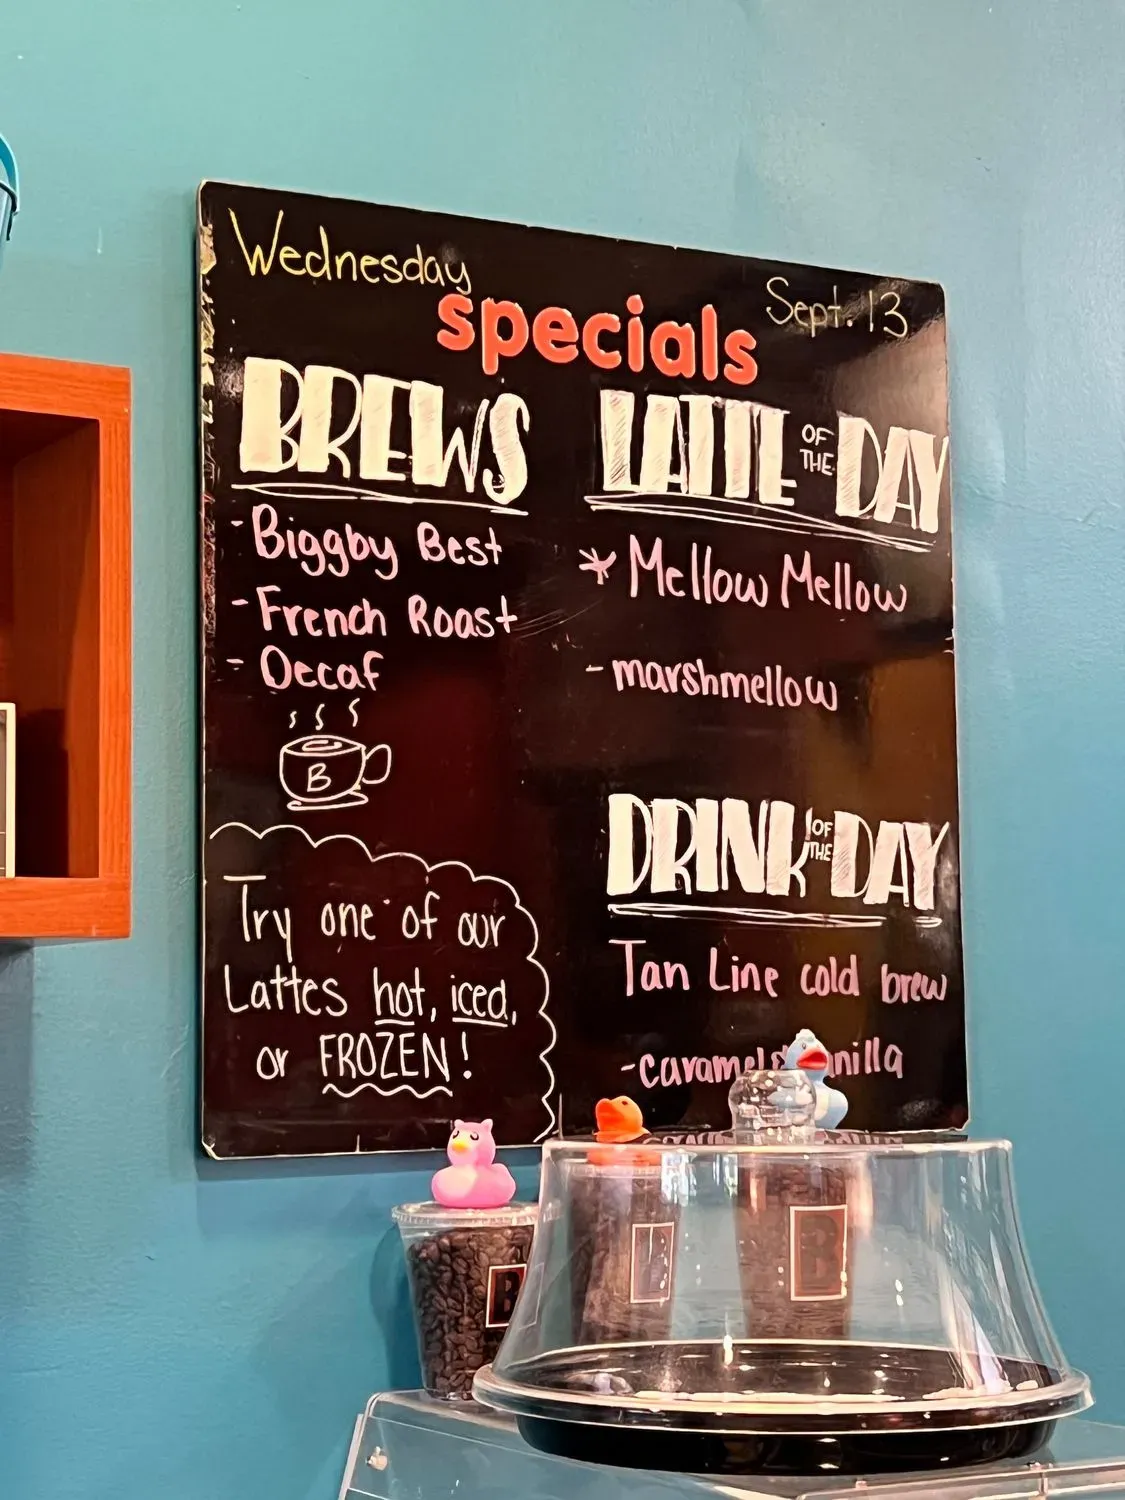 Wednesday
Sept. 13
specials
BREWS
- Biggby Best
- French Roast
- Decaf
B
Try one of our
Lattes hot, iced,
or FROZEN!
LATTE OF THE DAY
* Mellow Mellow
- marshmellow
DRINK OF THE DAY
Tan Line cold brew
- caramel &
B
B
B